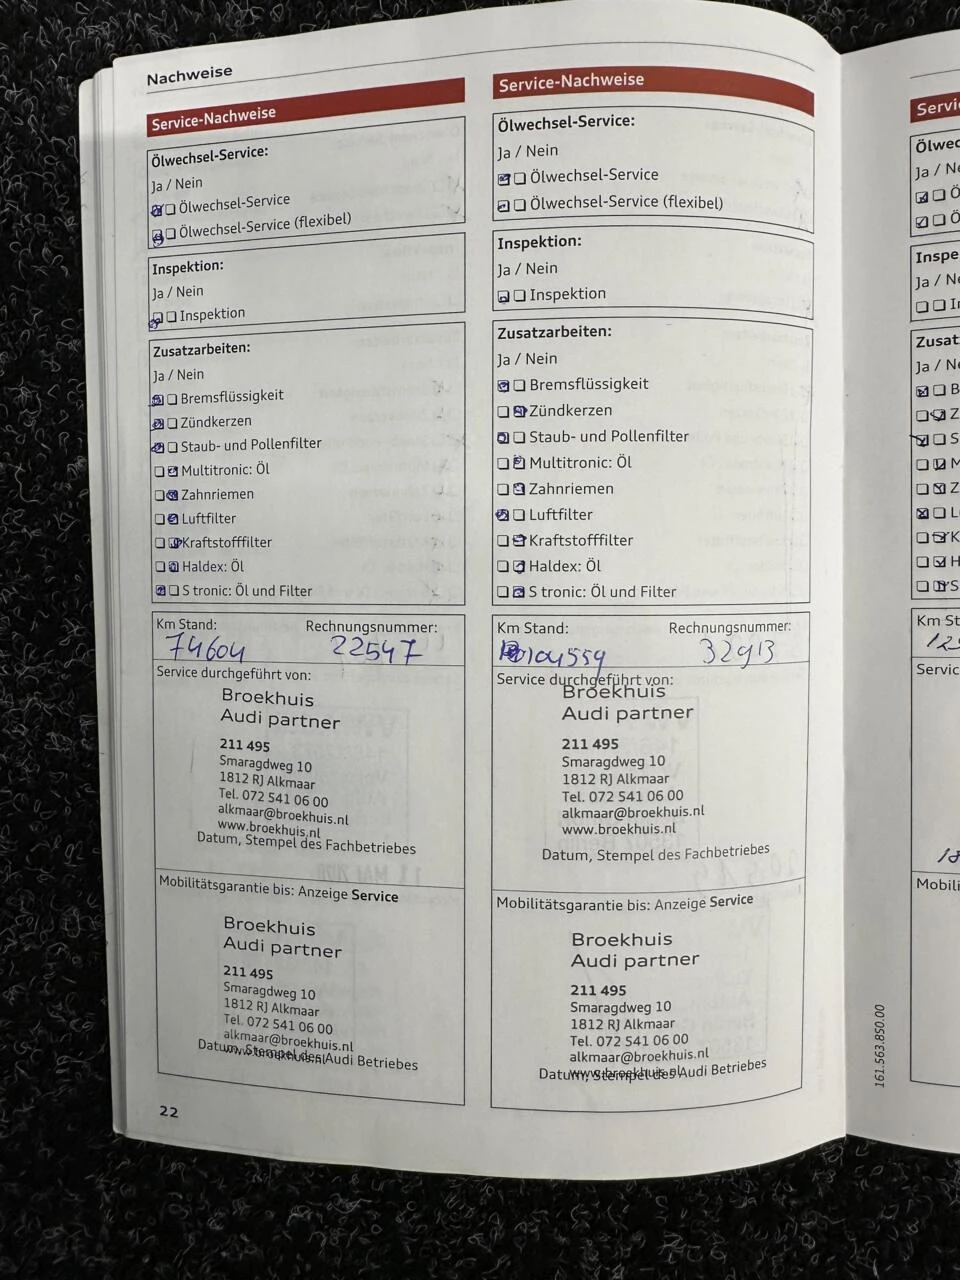 Nachweise
Service-Nachweise
Ölwechsel-Service:
Ja / Nein
Ölwechsel-Service
Ölwechsel-Service (flexibel)
Inspektion:
Ja / Nein
Inspektion
Zusatzarbeiten:
Ja / Nein
Bremsflüssigkeit
Zündkerzen
Staub- und Pollenfilter
Multitronic: Öl
Zahnriemen
Luftfilter
Kraftstofffilter
Haldex: Öl
S tronic: Öl und Filter
Km Stand: Rechnungsnummer:
74604 22547
Service durchgeführt von:
Broekhuis
Audi partner
211 495
Smaragdweg 10
1812 RJ Alkmaar
Tel. 072 541 06 00
alkmaar@broekhuis.nl
www.broekhuis.nl
Datum, Stempel des Fachbetriebes
Mobilitätsgarantie bis: Anzeige Service
Broekhuis
Audi partner
211 495
Smaragdweg 10
1812 RJ Alkmaar
Tel. 072 541 06 00
alkmaar@broekhuis.nl
www.broekhuis.nl
Datum, Stempel des Audi Betriebes
22
Service-Nachweise
Ölwechsel-Service:
Ja / Nein
Ölwechsel-Service
Ölwechsel-Service (flexibel)
Inspektion:
Ja / Nein
Inspektion
Zusatzarbeiten:
Ja / Nein
Bremsflüssigkeit
Zündkerzen
Staub- und Pollenfilter
Multitronic: Öl
Zahnriemen
Luftfilter
Kraftstofffilter
Haldex: Öl
S tronic: Öl und Filter
Km Stand: Rechnungsnummer:
104559 32913
Service durchgeführt von:
Broekhuis
Audi partner
211 495
Smaragdweg 10
1812 RJ Alkmaar
Tel. 072 541 06 00
alkmaar@broekhuis.nl
www.broekhuis.nl
Datum, Stempel des Fachbetriebes
Mobilitätsgarantie bis: Anzeige Service
Broekhuis
Audi partner
211 495
Smaragdweg 10
1812 RJ Alkmaar
Tel. 072 541 06 00
alkmaar@broekhuis.nl
www.broekhuis.nl
Datum, Stempel des Audi Betriebes
161.563.850.00
Servic
Ölwec
Ja / Ne
Inspe
Ja / Ne
Zusat
Ja / Ne
Km St
Servic
Mobili